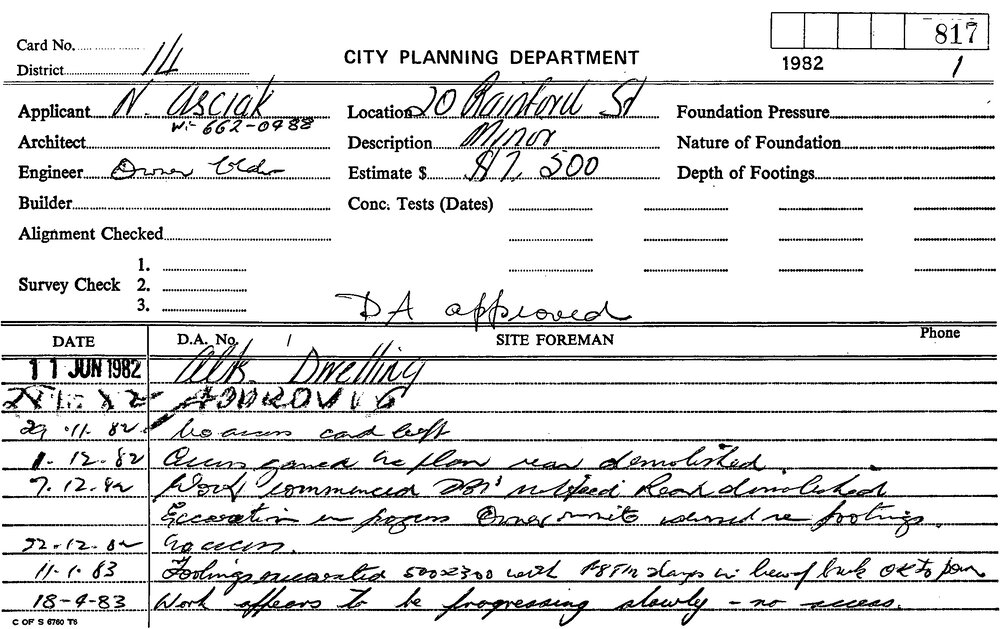 817
Card No.
District 14
CITY PLANNING DEPARTMENT
1982 1
Applicant N. Asciak Location 20 Rainford St Foundation Pressure
W:- 662-0488
Architect Description Minor Nature of Foundation
Engineer Owner Bldr Estimate $ $17,500 Depth of Footings
Builder Conc. Tests (Dates)
Alignment Checked
1.
Survey Check 2.
3.
DA approved
DATE D.A. No. SITE FOREMAN Phone
11 JUN 1982 Alts. Dwelling
82 APPROVING
29.11.82 No access card left
1.12.82 Access gained re plan rear demolished.
7.12.82 Work commenced notified Rear demolished
Excavation in progress Owner advised re footings.
22.12.82 No access.
11.1.83 Footings excavated 500x300 with OK to pour
18-4-83 Work appears to be progressing slowly - no access.
C OF S 6760 T6